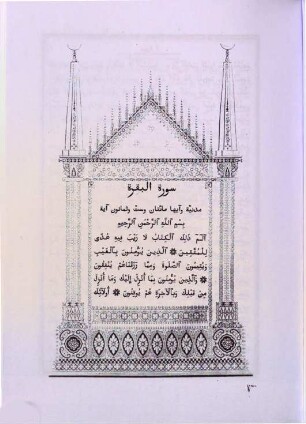 سورة البقرة
مدنية وآيها مائتان وست وثمانون آية
بِسْمِ ٱللَّهِ ٱلرَّحْمَٰنِ ٱلرَّحِيمِ
الٓمٓ ذَٰلِكَ ٱلْكِتَابُ لَا رَيْبَ فِيهِ هُدًى
لِلْمُتَّقِينَ ٱلَّذِينَ يُؤْمِنُونَ بِٱلْغَيْبِ
وَيُقِيمُونَ ٱلصَّلَوٰةَ وَمِمَّا رَزَقْنَاهُمْ يُنْفِقُونَ
وَٱلَّذِينَ يُؤْمِنُونَ بِمَا أُنْزِلَ إِلَيْكَ وَمَا أُنْزِلَ
مِنْ قَبْلِكَ وَبِٱلْآخِرَةِ هُمْ يُوقِنُونَ أُولَٰئِكَ